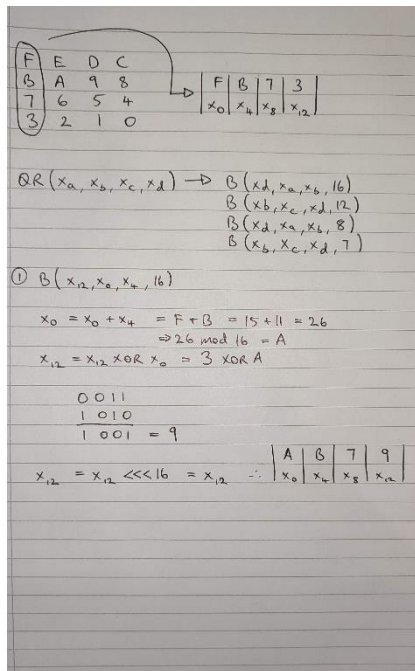 F E D C
B A 9 8
7 6 5 4
3 2 1 0
| F | B | 7 | 3 |
| x₀ | x₄ | x₈ | x₁₂ |
QR(xₐ, x_b, x_c, x_d) → B(x_d, xₐ, x_b, 16)
B(x_b, x_c, x_d, 12)
B(x_d, xₐ, x_b, 8)
B(x_b, x_c, x_d, 7)
① B(x₁₂, x₀, x₄, 16)
x₀ = x₀ + x₄ = F + B = 15 + 11 = 26
⇒ 26 mod 16 = A
x₁₂ = x₁₂ XOR x₀ = 3 XOR A
0011
1010
1001 = 9
x₁₂ = x₁₂ <<< 16 = x₁₂ ∴ | A | B | 7 | 9 |
| x₀ | x₄ | x₈ | x₁₂ |